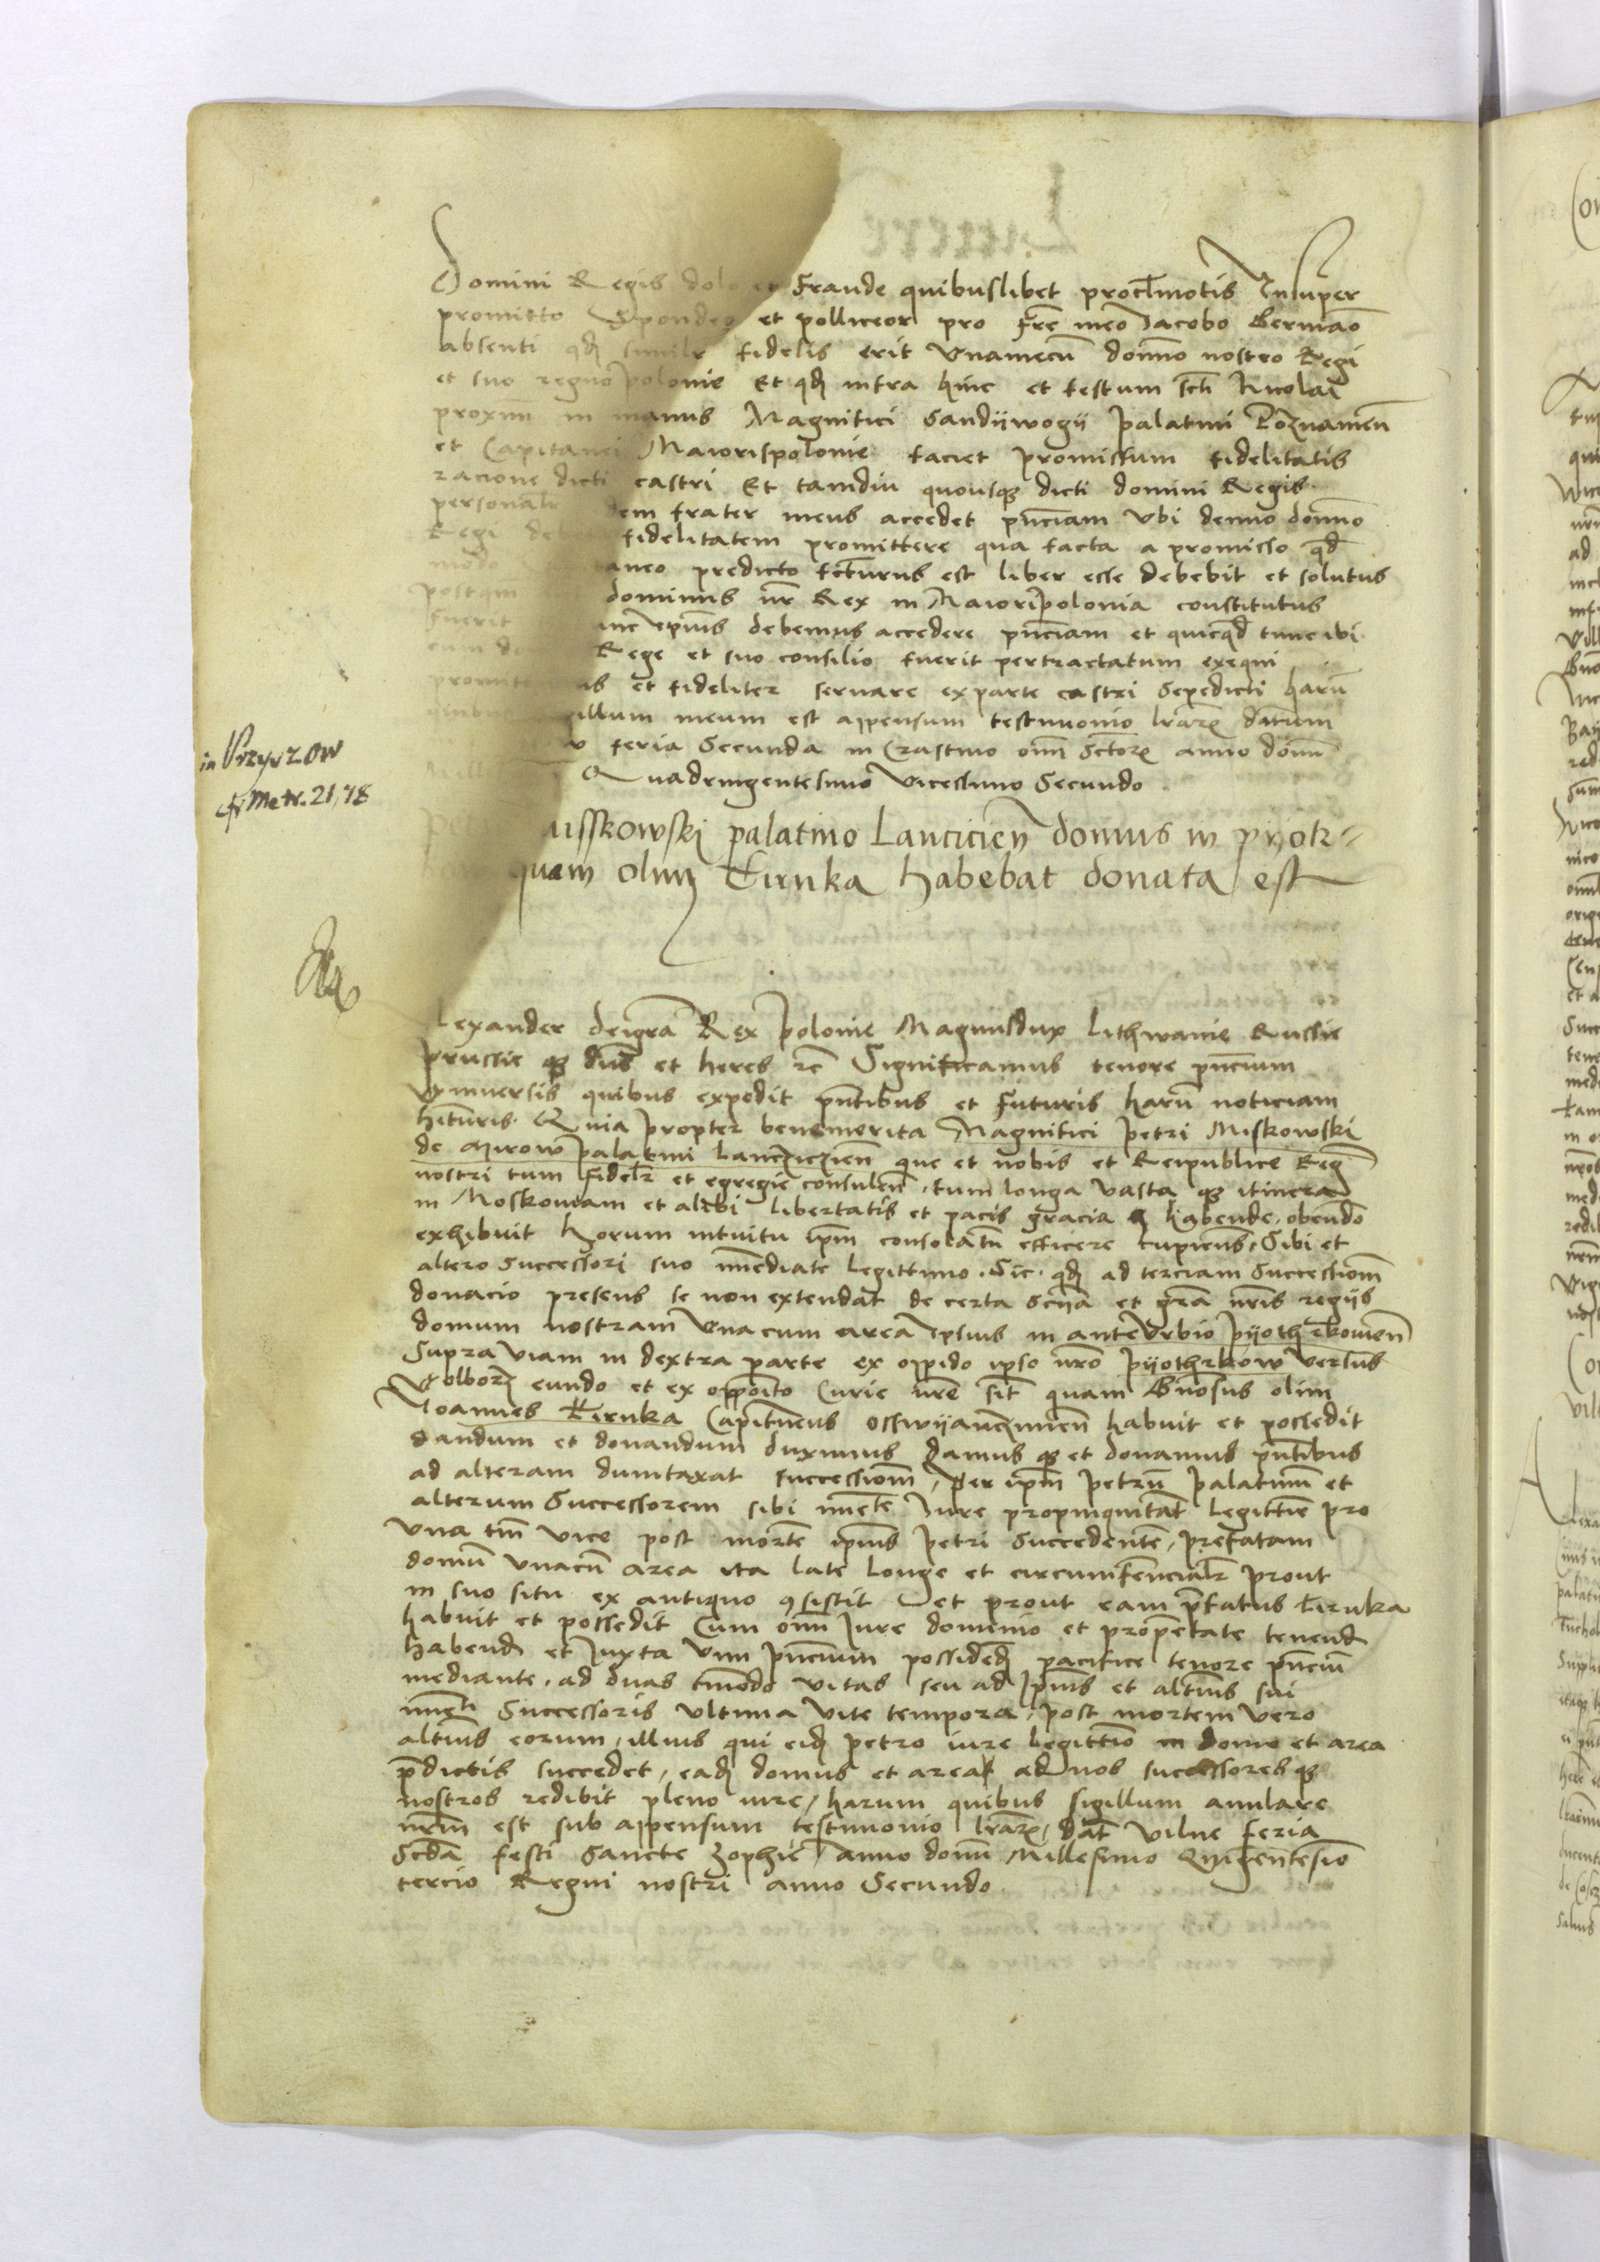 Domini Regis dolo et fraude quibuslibet procĺmotis Insuper
promitto Spondeo et polliceor pro frē meo Jacobo Germāo
absenti qđ simili fidelis erit Unamecū domīo nostro Regi
et suo regno polonie Et qđ infra hinc et festum scti Nicolai
proximi in manus Magnifici Sandiiwogij palatini Poznaniēn
et Capitanei Maiorispolonie faciet promissum fidelitatis
racione dicti castri Et tamdiu quousqȝ dicti domini Regis
personale dem frater meus accedet pn̄ciam Ubi denuo domīo
Regi de fidelitatem promittere qua facta a promisso qđ
modo aneo predicto fcturus est liber esse debebit et solutus
postqm dominus nr̄ Rex in Maioripolonia constitutus
fuerit unc ipīus debemus accedere pn̄ciam et quicqđ tunc ibi
cum do Rege et suo consilio fuerit pertractatum exequi
promit us et fideliter servare ex parte castri Sepedicti harū
quibus sigillum meum est appensum testimonio lrarꝝ datum
feria Secunda in Crastino omī Sctorꝝ anno domī
Mill Quadringentesimo Vicesimo Secundo
in Vrzyrzow
cfr Metr. 21, 78
misskowski palatino Lanciciēn domus in pijotr=
quam olim Tirnka habebat donata est
lexander dei grā Rex polonie Magnusdux Lithwanie Russie
prussie qȝ dn̄s et heres rc̄ Significamus tenore pn̄cium
Vniuersis quibus expedit pn̄tibus et futuris harū noticiam
hituris Quia propter benemerita Magnifici petri Miskowski
de Mirow palatini Lancziciēn que et nobis et Reipublice Regni
nostri tum fidelr̄ et egregie consulēn, tum longa vasta qȝ itinera
in Moskoviam et alibi libertatis et pacis gracia habende, obeundo
exhibuit horum intuitu ipm̄ consolatū efficere cupiens, Sibi et
altero Successori suo immediate legittimo. Sic qđ ad terciam Successionem
donacio presens se non extendat de certa Sciīa et grā nr̄is regijs
domum nostram Unacum area ipsius in antevrbio pijothrkowiēn
Supra viam in dextra parte ex oppido ipso nr̄o pijothrkow versus
Wolborꝝ eundo et ex opposito Curie nr̄e sit quam Gn̄osus olim
Joannes Tirnka Capitaneus osswijanczimiēn habuit et possedit
dandum et donandum duximus damus qȝ et donamus pn̄tibus
ad alteram dumtaxat successionem, per ipm̄ petrū palatinū et
alterum Successorem sibi imēte Jure propinquitat legittīe pro
una tm̄ vice post mortē ipīus petri Succedentē, prefatam
domū unacū area ita late longe et circumferncialr̄ prout
in suo situ ex antiquo consistit et prout eam p̄fatus Tirnka
habuit et possedit Cum omī Jure dominio et proprietate tenenđ
habenđ et Juxta Vim pn̄cium possidēđ pacifice tenore pn̄ciū
mediante, ad duas tm̄modo vitas seu ad ipīus et alterius sui
imēti Successoris ultima vite tempora, post mortem vero
alterius eorum, illius qui eiđ petro iure legittīo in domo et area
p̄dictis succedet, eađ domus et area ad nos successores qȝ
nostros redibit pleno iure, harum quibus sigillum anulare
nr̄m est sub appensum testimonio lrarꝝ, Dat̄ vilne feria
Scđa festi Sancte Zophie anno domī Millesimo Quigentesīo
tercio Regni nostri anno Secundo